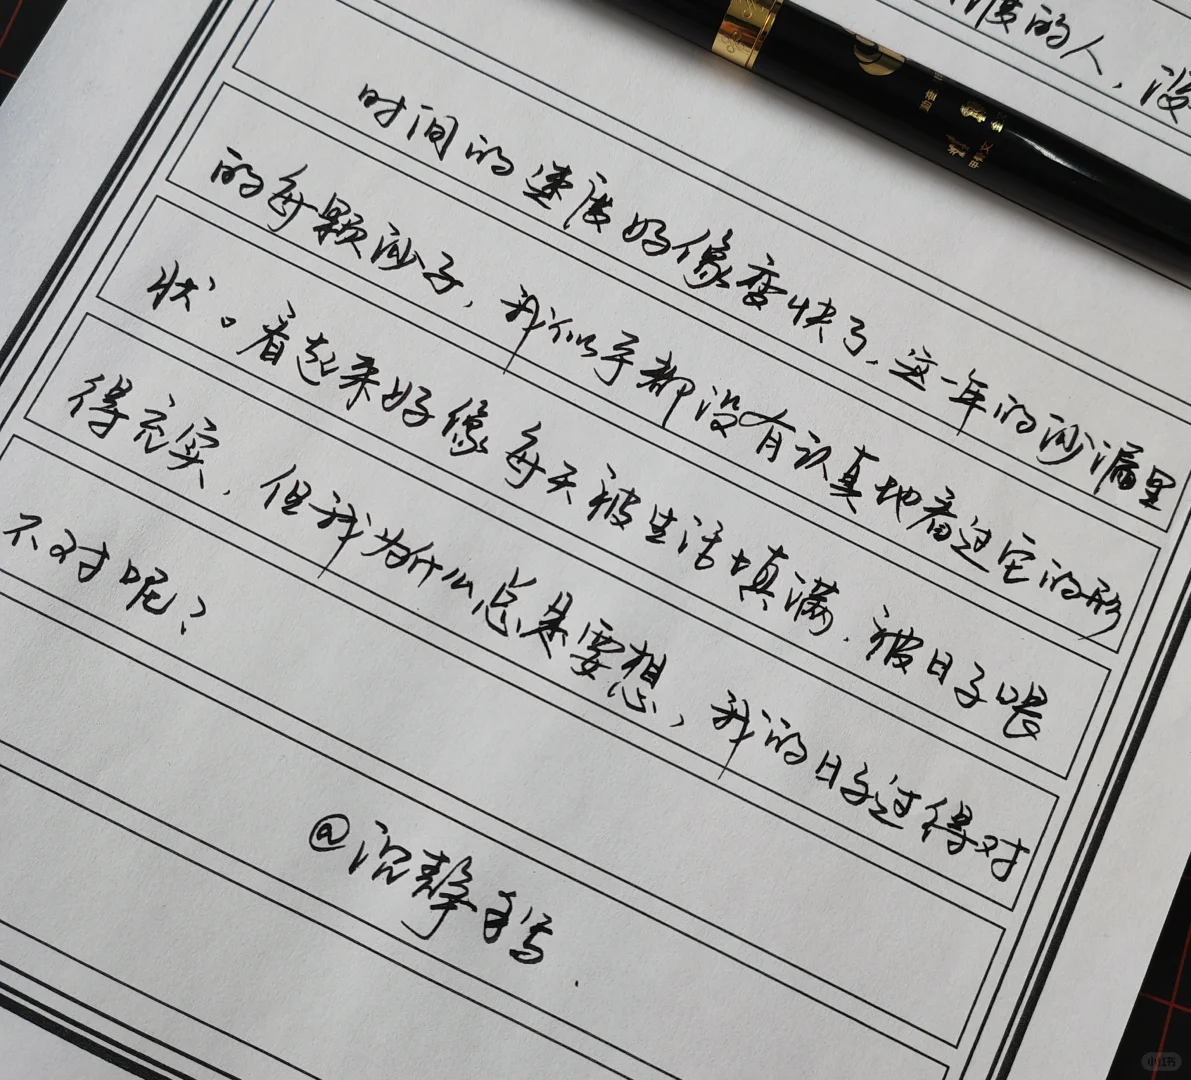 度的人，没
时间的速度好像变快了，这一年的沙漏里
的每颗沙子，我们似乎都没有认真地看过它的形
状。看起来好像每天被生活填满，被日子喂
得充实，但我为什么总是要想，我的日子过得对
不对呢？
@沉静手写.
小红书